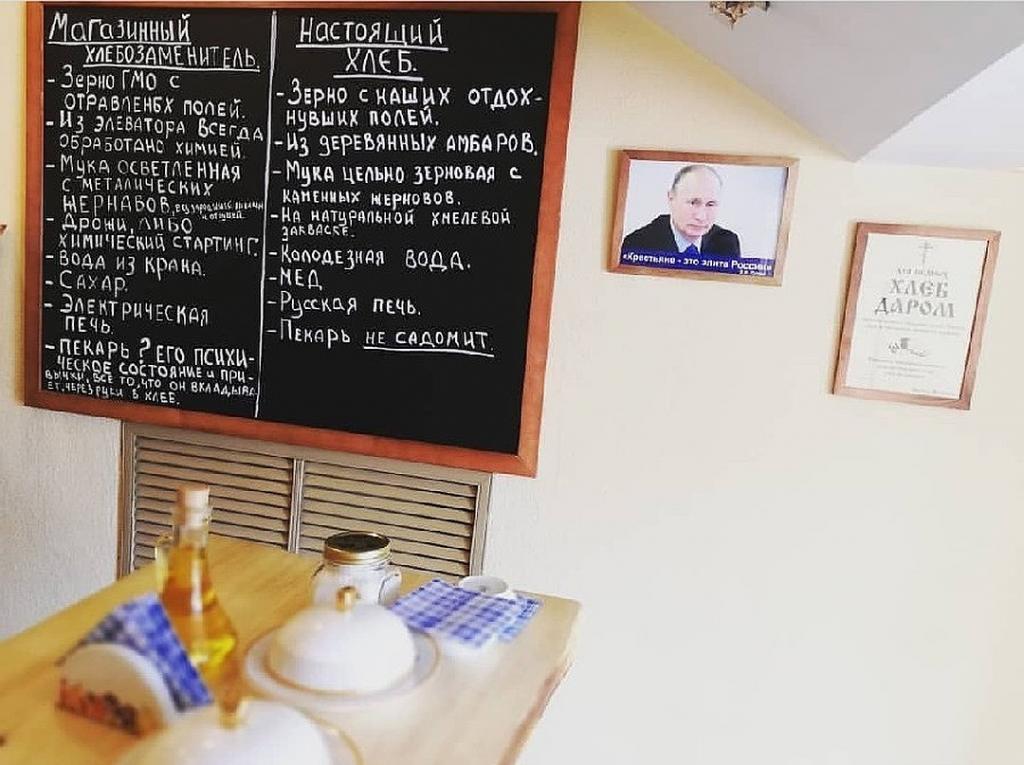 Магазинный
хлебозаменитель.
- Зерно ГМО с
отравленбх полей.
- Из элеватора всегда
обработано химией.
- Мука осветленная
с металических
жернабов,
- Дрожи, либо
химический стартинг.
- Вода из крана.
- Сахар.
- Электрическая
печь.
- Пекарь? Его психи-
ческое состояние и при-
вычки, все то, что он вкладыва-
ет через руки в хлеб.
Настоящий
хлеб.
- Зерно с наших отдох-
нувших полей.
- Из деревянных амбаров.
- Мука цельно зерновая с
каменных жерновов.
- На натуральной хмелевой
закваске.
- Колодезная вода.
- Мед
- Русская печь.
- Пекарь не садомит.
«Крестьяне - это элита России»
ХЛЕБ
ДАРОМ